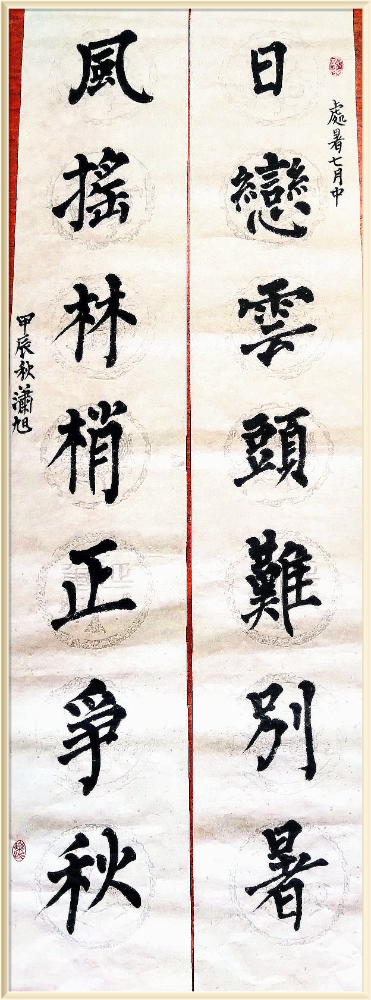 處暑七月中
日戀雲頭難別暑
風搖林梢正爭秋
甲辰秋瀟旭